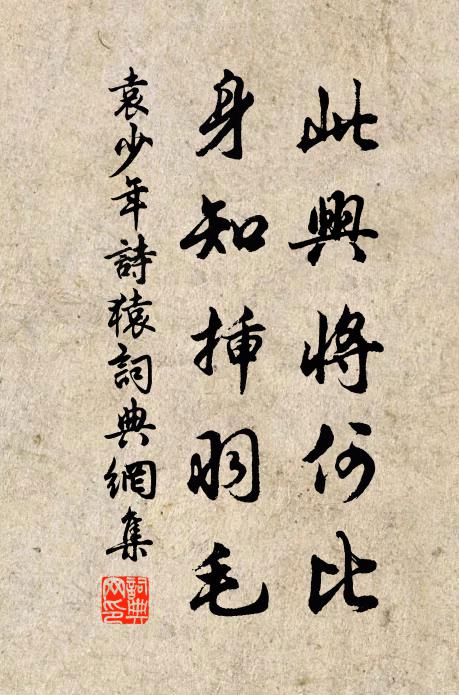 此興將何比
身知插羽毛
袁少年詩猿詞典網集
詞典網印